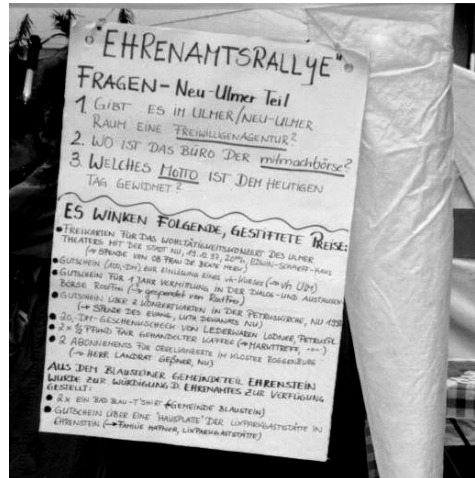 "EHRENAMTSRALLYE"
FRAGEN - Neu-Ulmer Teil
1. GIBT ES IM ULMER/NEU-ULMER
RAUM EINE FREIWILLIGENAGENTUR?
2. WO IST DAS BÜRO DER mitmachbörse?
3. WELCHES MOTTO IST DEM HEUTIGEN
TAG GEWIDMET?
ES WINKEN FOLGENDE, GESTIFTETE PREISE:
• FREIKARTEN FÜR DAS WOHLTÄTIGKEITSKONZERT DES ULMER
THEATERS MIT DER STADT NU, 19.12.97, 20 Uhr, EDWIN-SCHARFF-HAUS
(→ SPENDE VON OB FRAU DR BEATE MERK)
• GUTSCHEIN (100,-DM) ZUR EINLÖSUNG EINES vh-KURSES (→ vh ULM)
• GUTSCHEIN FÜR 1 JAHR VERMITTLUNG IN DER DIALOG- UND AUSTAUSCH-
BÖRSE (→ gespendet von
• GUTSCHEIN ÜBER 2 KONZERTKARTEN IN DER PETRUSKIRCHE, NU 1998
(→ SPENDE DES EVANG. LUTH. DEKANATS NU)
• 20,-DM-GESCHENKSCHECK VON LEDERWAREN
• 2 x ½ PFUND FAIR GEHANDELTER KAFFEE (→
• 2 ABONNEMENTS FÜR ORGELKONZERTE IM KLOSTER ROGGENBURG
(→ HERR LANDRAT GEßNER, NU)
AUS DEM BLAUSTEINER GEMEINDETEIL EHRENSTEIN
WURDE ZUR WÜRDIGUNG D. EHRENAMTES ZUR VERFÜGUNG
GESTELLT:
• 2x EIN BAD BLAU-T'SHIRT (GEMEINDE BLAUSTEIN)
• GUTSCHEIN ÜBER EINE "HAUSPLATTE" DER LIXPARKGASTSTÄTTE IN
EHRENSTEIN (→ FAMILIE HAFNER, LIXPARKGASTSTÄTTE)